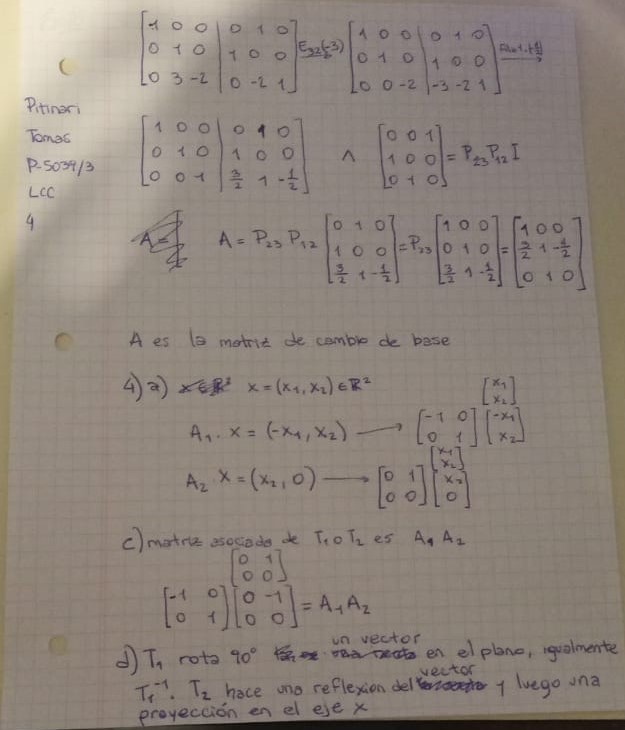 [1 0 0 | 0 1 0] [1 0 0 | 0 1 0]
[0 1 0 | 1 0 0] E32(-3) [0 1 0 | 1 0 0]
[0 3 -2 | 0 -2 1] [0 0 -2 | -3 -2 1]
Pitinari
Tomas
P-5039/3
LCC
4
[1 0 0 | 0 1 0] [0 0 1]
[0 1 0 | 1 0 0] ∧ [1 0 0] = P23 P12 I
[0 0 1 | 3/2 1 -1/2] [0 1 0]
[0 1 0] [1 0 0] [1 0 0]
A = P23 P12 [1 0 0] = P23 [0 1 0] = [3/2 1 -1/2]
[3/2 1 -1/2] [3/2 1 -1/2] [0 1 0]
A es la matriz de cambio de base
4) a) x = (x1, x2) ∈ R²
[x1]
[x2]
A1. x = (-x1, x2) → [-1 0] [-x1]
[0 1] [x2]
[x1]
[x2]
A2 . x = (x2, 0) → [0 1] [x2]
[0 0] [0]
c) matriz asociada de T1 o T2 es A1 A2
[0 1]
[0 0]
[-1 0] [0 -1] = A1 A2
[0 1] [0 0]
d) T1 rota 90° un vector en el plano, igualmente
T1⁻¹. T2 hace una reflexion del vector y luego una
proyección en el eje x